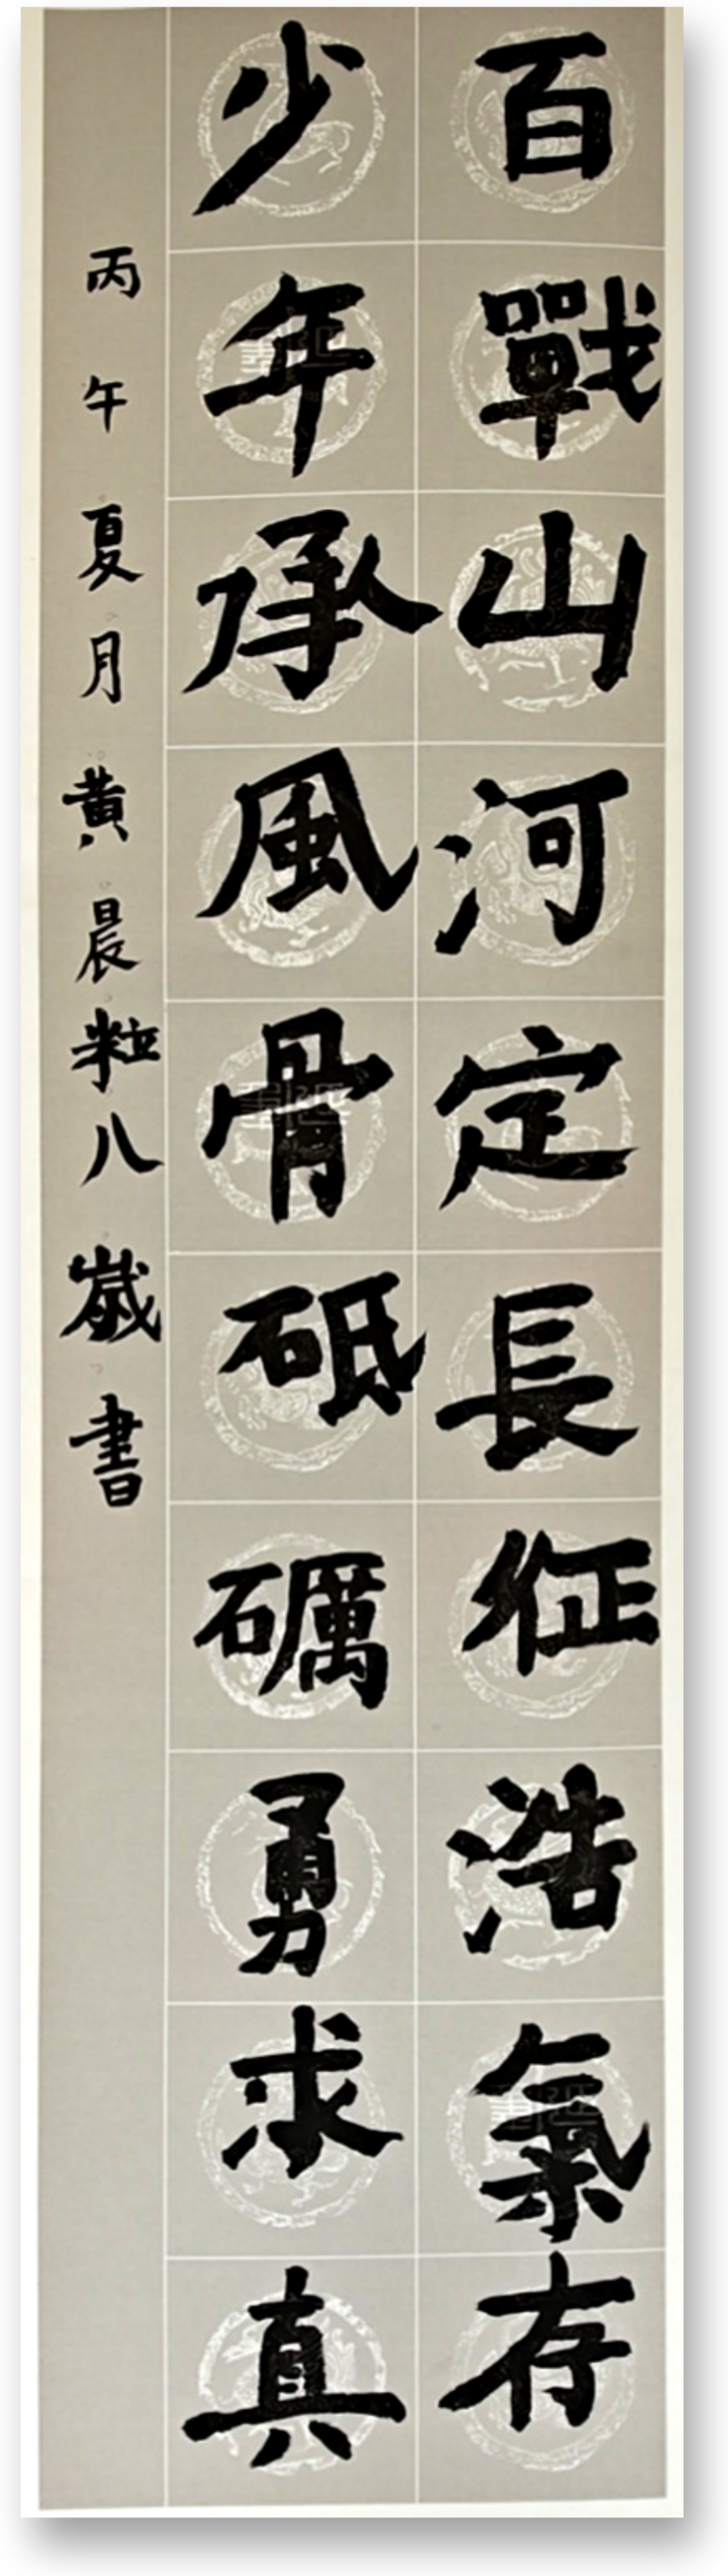 百戰山河定長征浩氣存
少年承風骨砥礪勇求真
丙午夏月黄晨粒八歲書